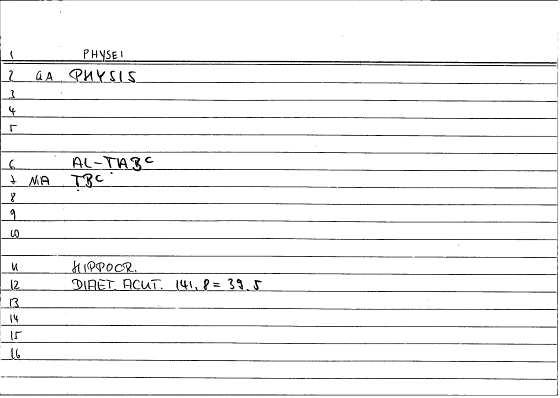 1 PHYSEI
2 GA PHYSIS
3
4
5
6 AL-ṬABC
7 MA ṬBC
8
9
10
11 HIPPOCR.
12 DIAET. ACUT. 141, 8 = 39, 5
13
14
15
16